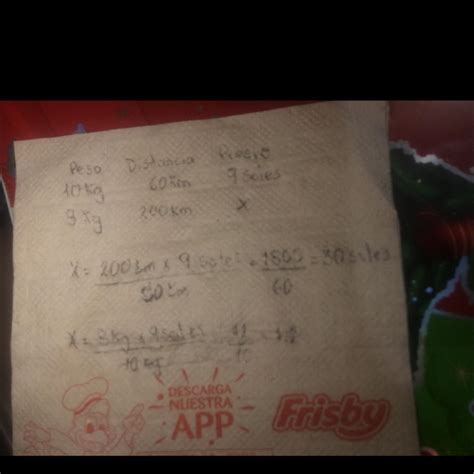 Peso Distancia Precio
10 Kg 60 Km 9 soles
8 Kg 200 Km x
X = 200 Km x 9 soles = 1800 = 30 soles
60
X = 8 Kg x 9 soles
10 Kg
DESCARGA
NUESTRA
APP
Frisby